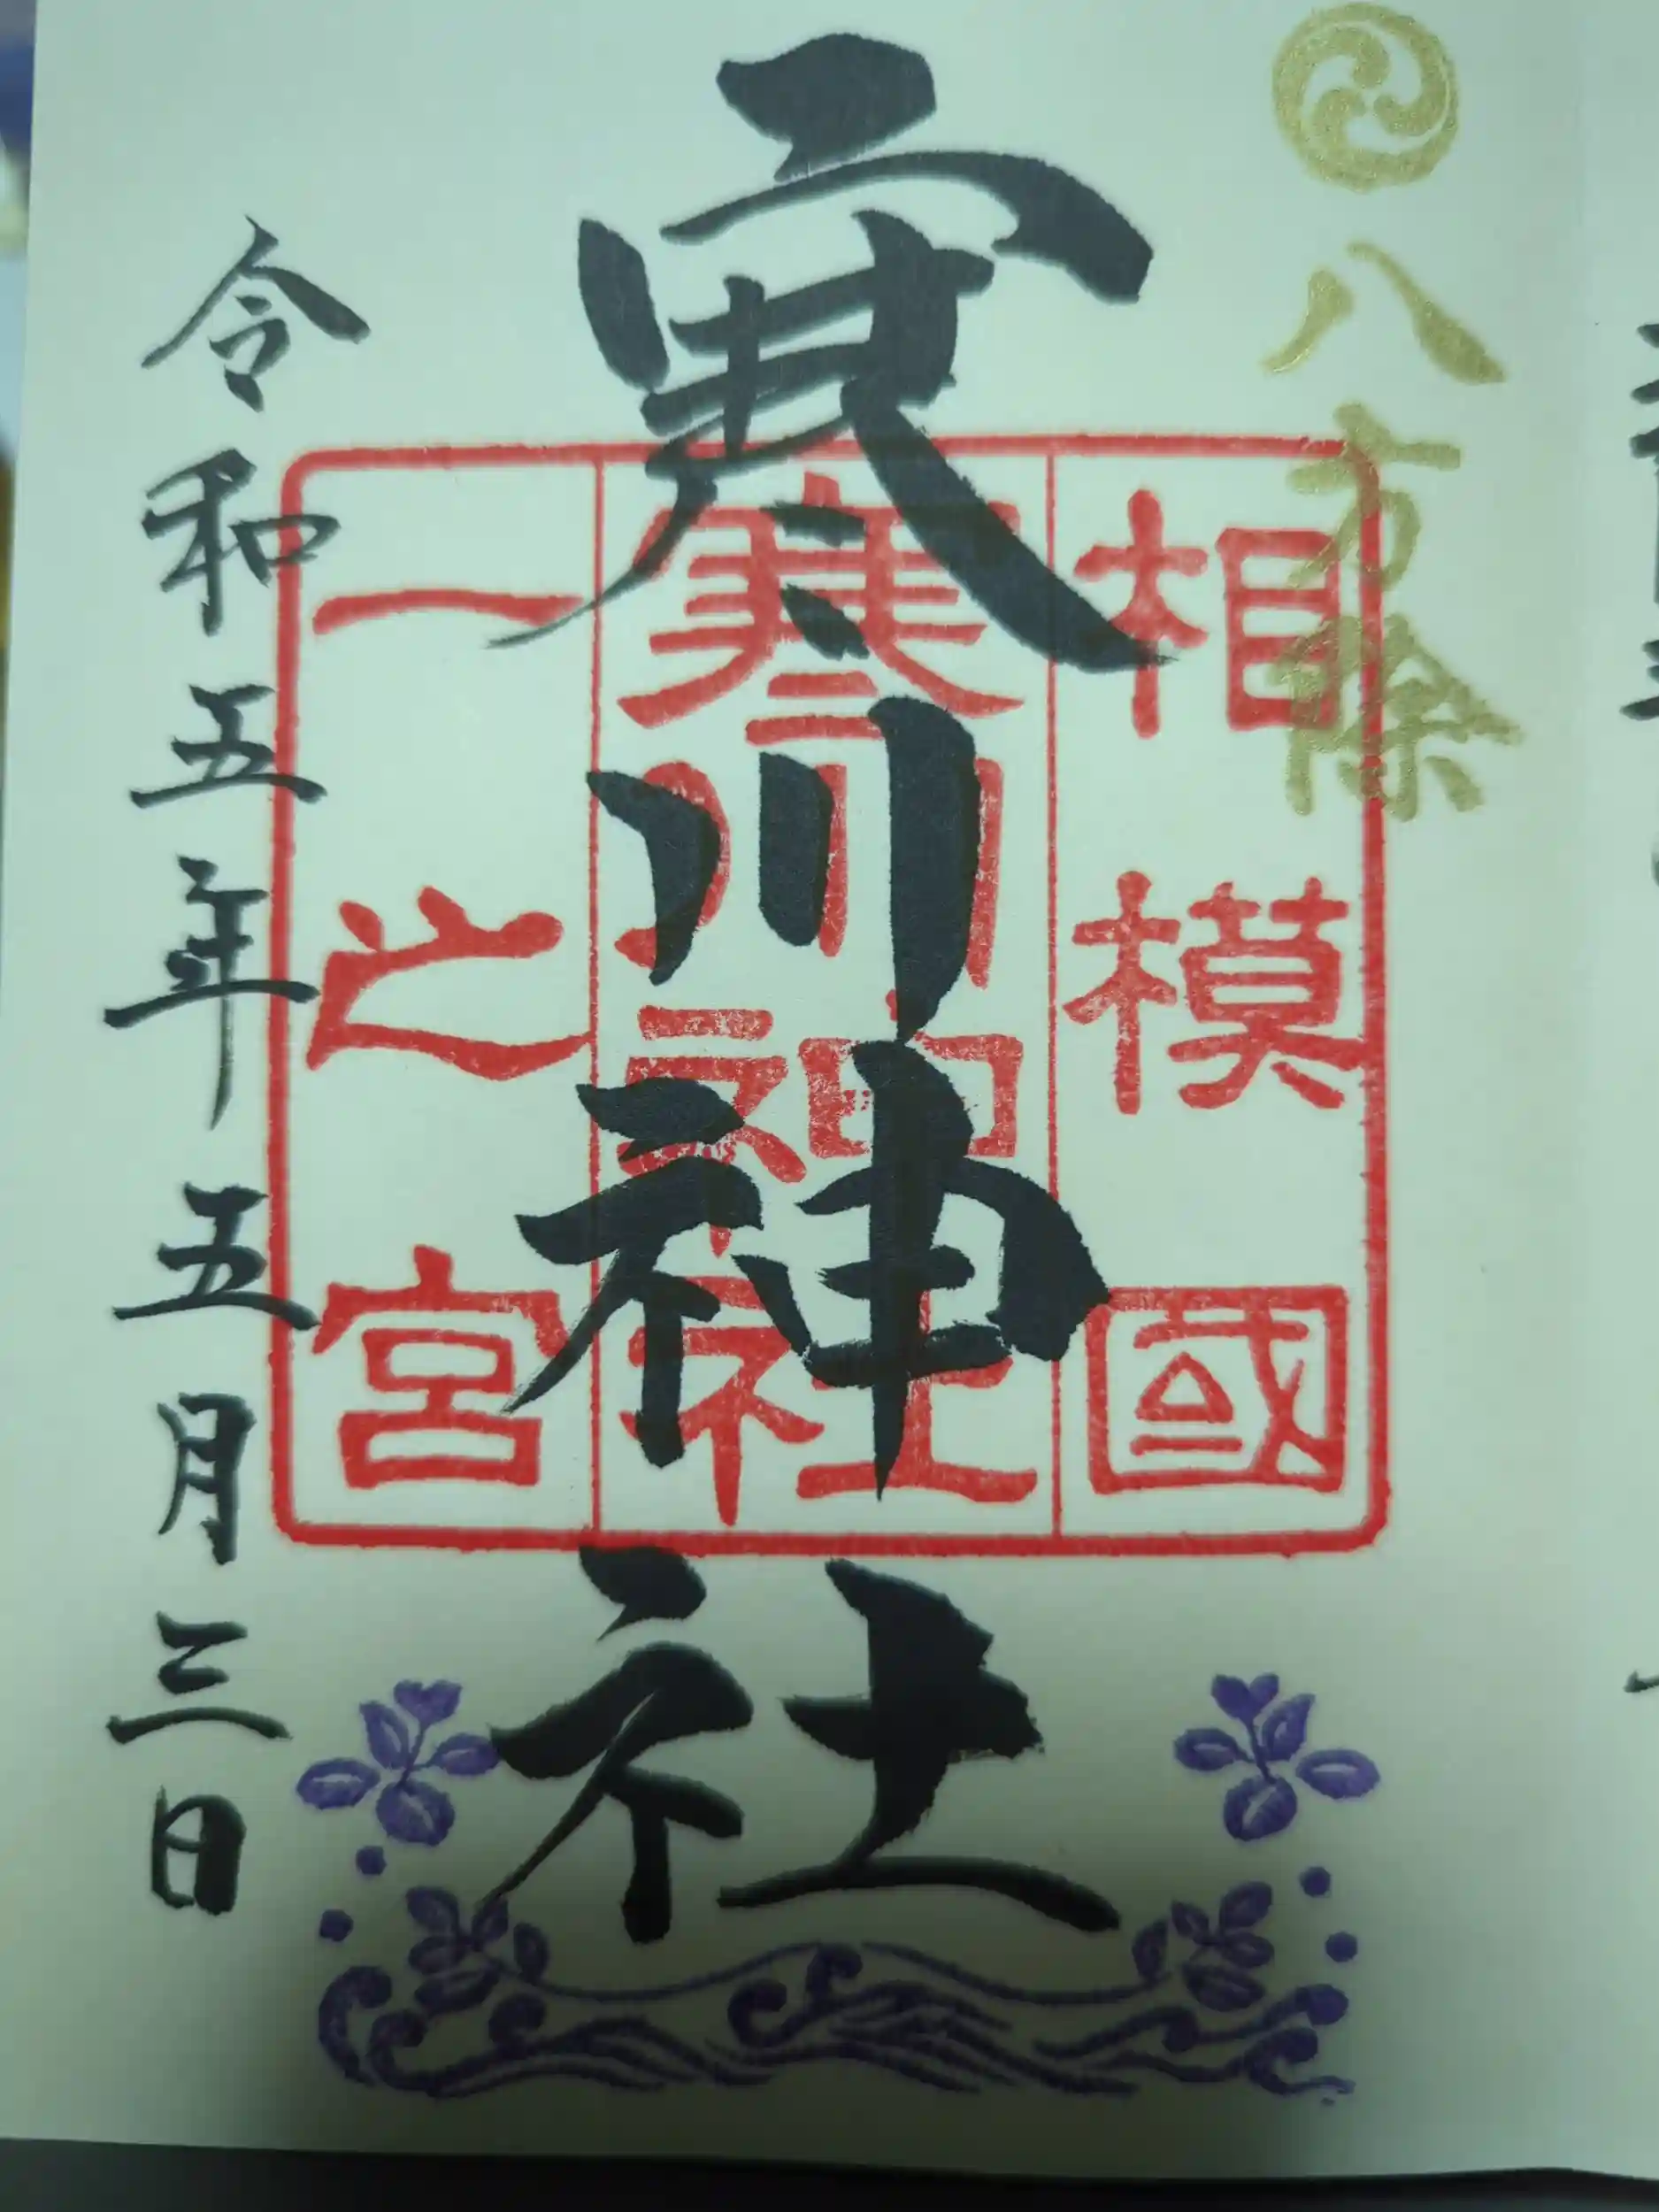 八方除
寒川神社
相模國
寒川神社
一之宮
令和五年五月三日